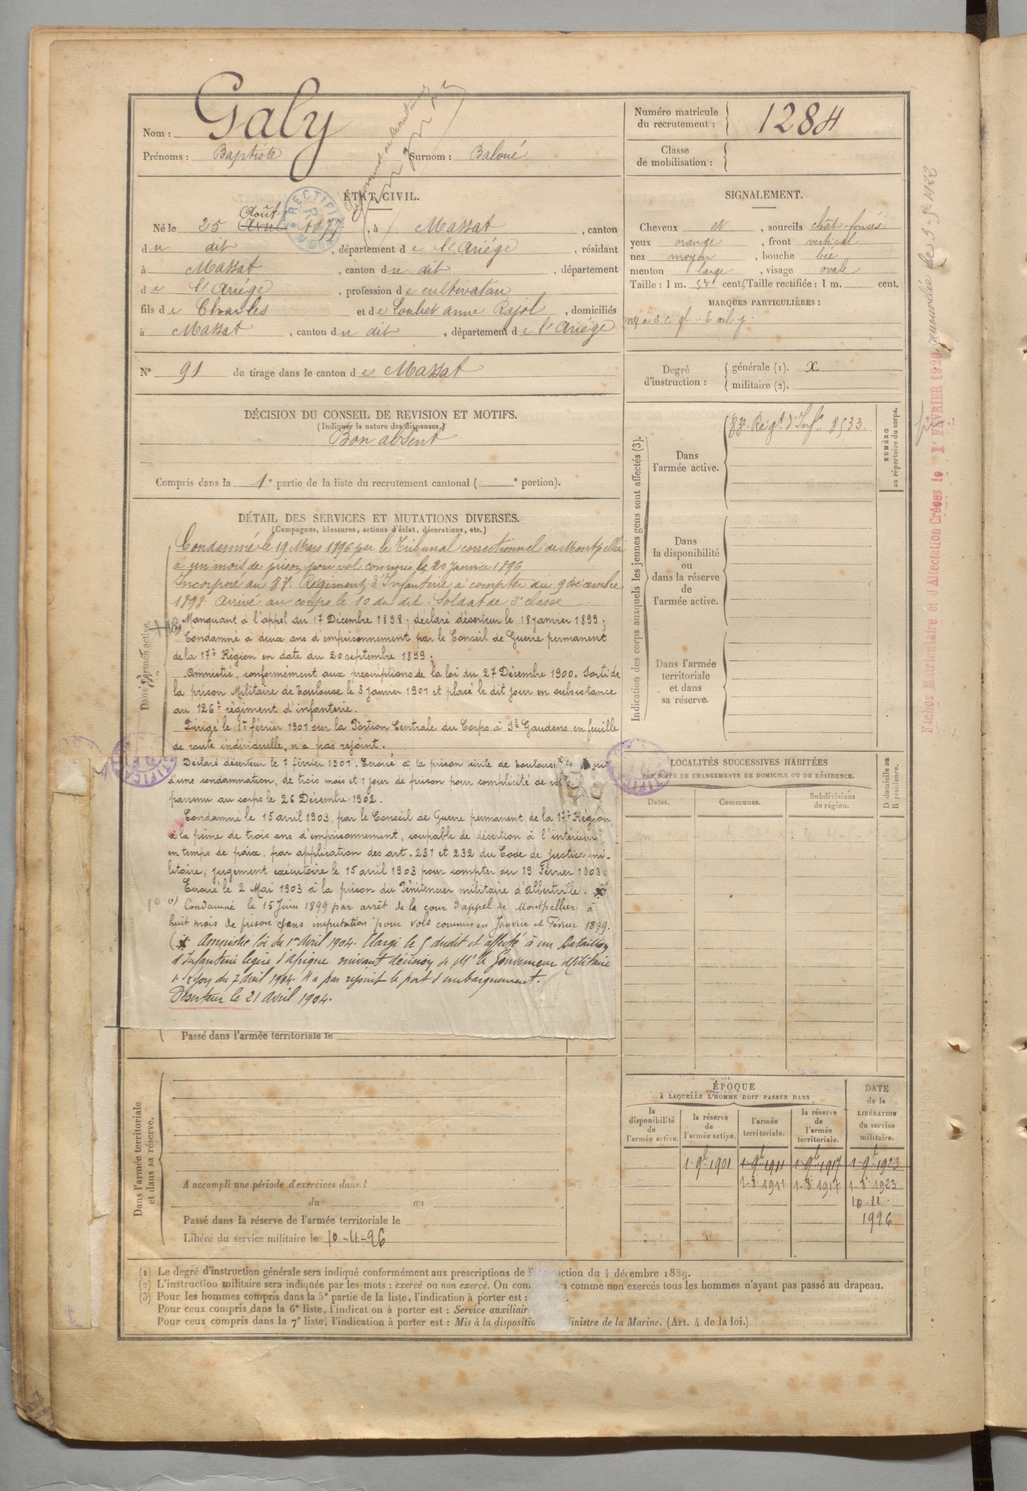 Nom : Galy
Prénoms : Baptiste Surnom : Baloué
Numéro matricule du recrutement : 1284
Classe de mobilisation :
ÉTAT CIVIL.
Août
Né le 25 Avril 1877, à Massat, canton
du dit, département de l'Ariége, résidant
à Massat, canton du dit, département
de l'Ariége, profession de cultivateur
fils de Charles et de Loubet anne Rajol, domiciliés
à Massat, canton du dit, département de l'Ariége
N° 91 de tirage dans le canton de Massat
SIGNALEMENT.
Cheveux et, sourcils chât. foncés
yeux orange, front vertical
nez moyen, bouche
menton large, visage ovale
Taille : 1 m. cent. Taille rectifiée : 1 m. cent.
MARQUES PARTICULIÈRES :
Degré d'instruction : générale (1). x
militaire (2).
DÉCISION DU CONSEIL DE REVISION ET MOTIFS.
(Indiquer la nature des dispenses.)
Bon absent
Compris dans la 1e partie de la liste du recrutement cantonal ( e portion).
DÉTAIL DES SERVICES ET MUTATIONS DIVERSES.
(Campagnes, blessures, actions d'éclat, décorations, etc.)
Condamné le 19 Mars 1896 par le Tribunal correctionnel de Montpellier
à un mois de prison pour vol commis le 20 Janvier 1896
Incorporé au Régiment d'Infanterie à compter du 9 décembre
1898 Arrivé au corps le 10 du dit. Soldat de 2e classe
Manquant à l'appel du 17 Décembre 1898 ; déclaré déserteur le 18 janvier 1899 ;
Condamné à deux ans d'emprisonnement par le Conseil de Guerre permanent
de la 17e Région en date du 20 septembre 1899 ;
Amnistié, conformément aux prescriptions de la loi du 27 Décembre 1900. Sorti de
la prison Militaire de Toulouse le 3 janvier 1901 et placé le dit jour en subsistance
au 126e régiment d'infanterie.
Dirigé le 1er février 1901 sur la Portion Centrale du Corps à St Gaudens en feuille
de route individuelle, n'a pas rejoint.
Déclaré déserteur le 7 février 1901. Ecroué à la prison civile de Toulouse
d'une condamnation, de trois mois et 1 jour de prison pour complicité de vol
parvenu au corps le 26 Décembre 1902.
Condamné le 15 avril 1903, par le Conseil de Guerre permanent de la 17e Région
à la peine de trois ans d'emprisonnement, coupable de désertion à l'intérieur
en temps de paix, par application des art. 231 et 232 du Code de justice mi-
litaire, jugement exécutoire le 15 avril 1903 pour compter du 19 Février 1903.
Ecroué le 2 Mai 1903 à la prison du Pénitencier militaire d'Albertville.
Condamné le 15 Juin 1899 par arrêt de la cour d'appel de Montpellier à
huit mois de prison sans imputation pour vols commis en Janvier et Février 1899.
Amnistié loi du 1er Avril 1904. Elargi le 5 dudit et affecté à un Bataillon
d'Infanterie légère d'Afrique suivant décision de Mr le Gouverneur Militaire
de Lyon du 7 Avril 1904. N'a pas rejoint le port d'embarquement.
Déserteur le 21 avril 1904.
Passé dans l'armée territoriale le
Dans l'armée territoriale et dans sa réserve.
A accompli une période d'exercices dans l
du au
Passé dans la réserve de l'armée territoriale le
Libéré du service militaire le 10-11-26
Indication des corps auxquels les jeunes gens sont affectés (3).
Dans l'armée active.
Régt d'Infie 8533.
NUMÉRO au répertoire du corps.
Dans la disponibilité ou dans la réserve de l'armée active.
Dans l'armée territoriale et dans sa réserve.
LOCALITÉS SUCCESSIVES HABITÉES
PAR SUITE DE CHANGEMENTS DE DOMICILE OU DE RÉSIDENCE.
Dates. Communes. Subdivisions de région. D domicile ou R résidence.
ÉPOQUE
À LAQUELLE L'HOMME DOIT PASSER DANS
la disponibilité de l'armée active.
la réserve de l'armée active.
l'armée territoriale.
la réserve de l'armée territoriale.
DATE de la LIBÉRATION du service militaire.
1-9b-1901 1-9b-1911 1-9b-1917 1-9b-1923
1-8-1911 1-8-1917 1-8-1923
10-11-
1926
(1) Le degré d'instruction générale sera indiqué conformément aux prescriptions de l' ction du 4 décembre 1889.
(2) L'instruction militaire sera indiquée par les mots : exercé ou non exercé. On com comme non exercés tous les hommes n'ayant pas passé au drapeau.
(3) Pour les hommes compris dans la 5e partie de la liste, l'indication à porter est :
Pour ceux compris dans la 6e liste, l'indication à porter est : Service auxiliair
Pour ceux compris dans la 7e liste, l'indication à porter est : Mis à la dispositio inistre de la Marine. (Art. 4 de la loi.)
Fiches Matriculaire et d'Affectation Créées le 1er FEVRIER 1920